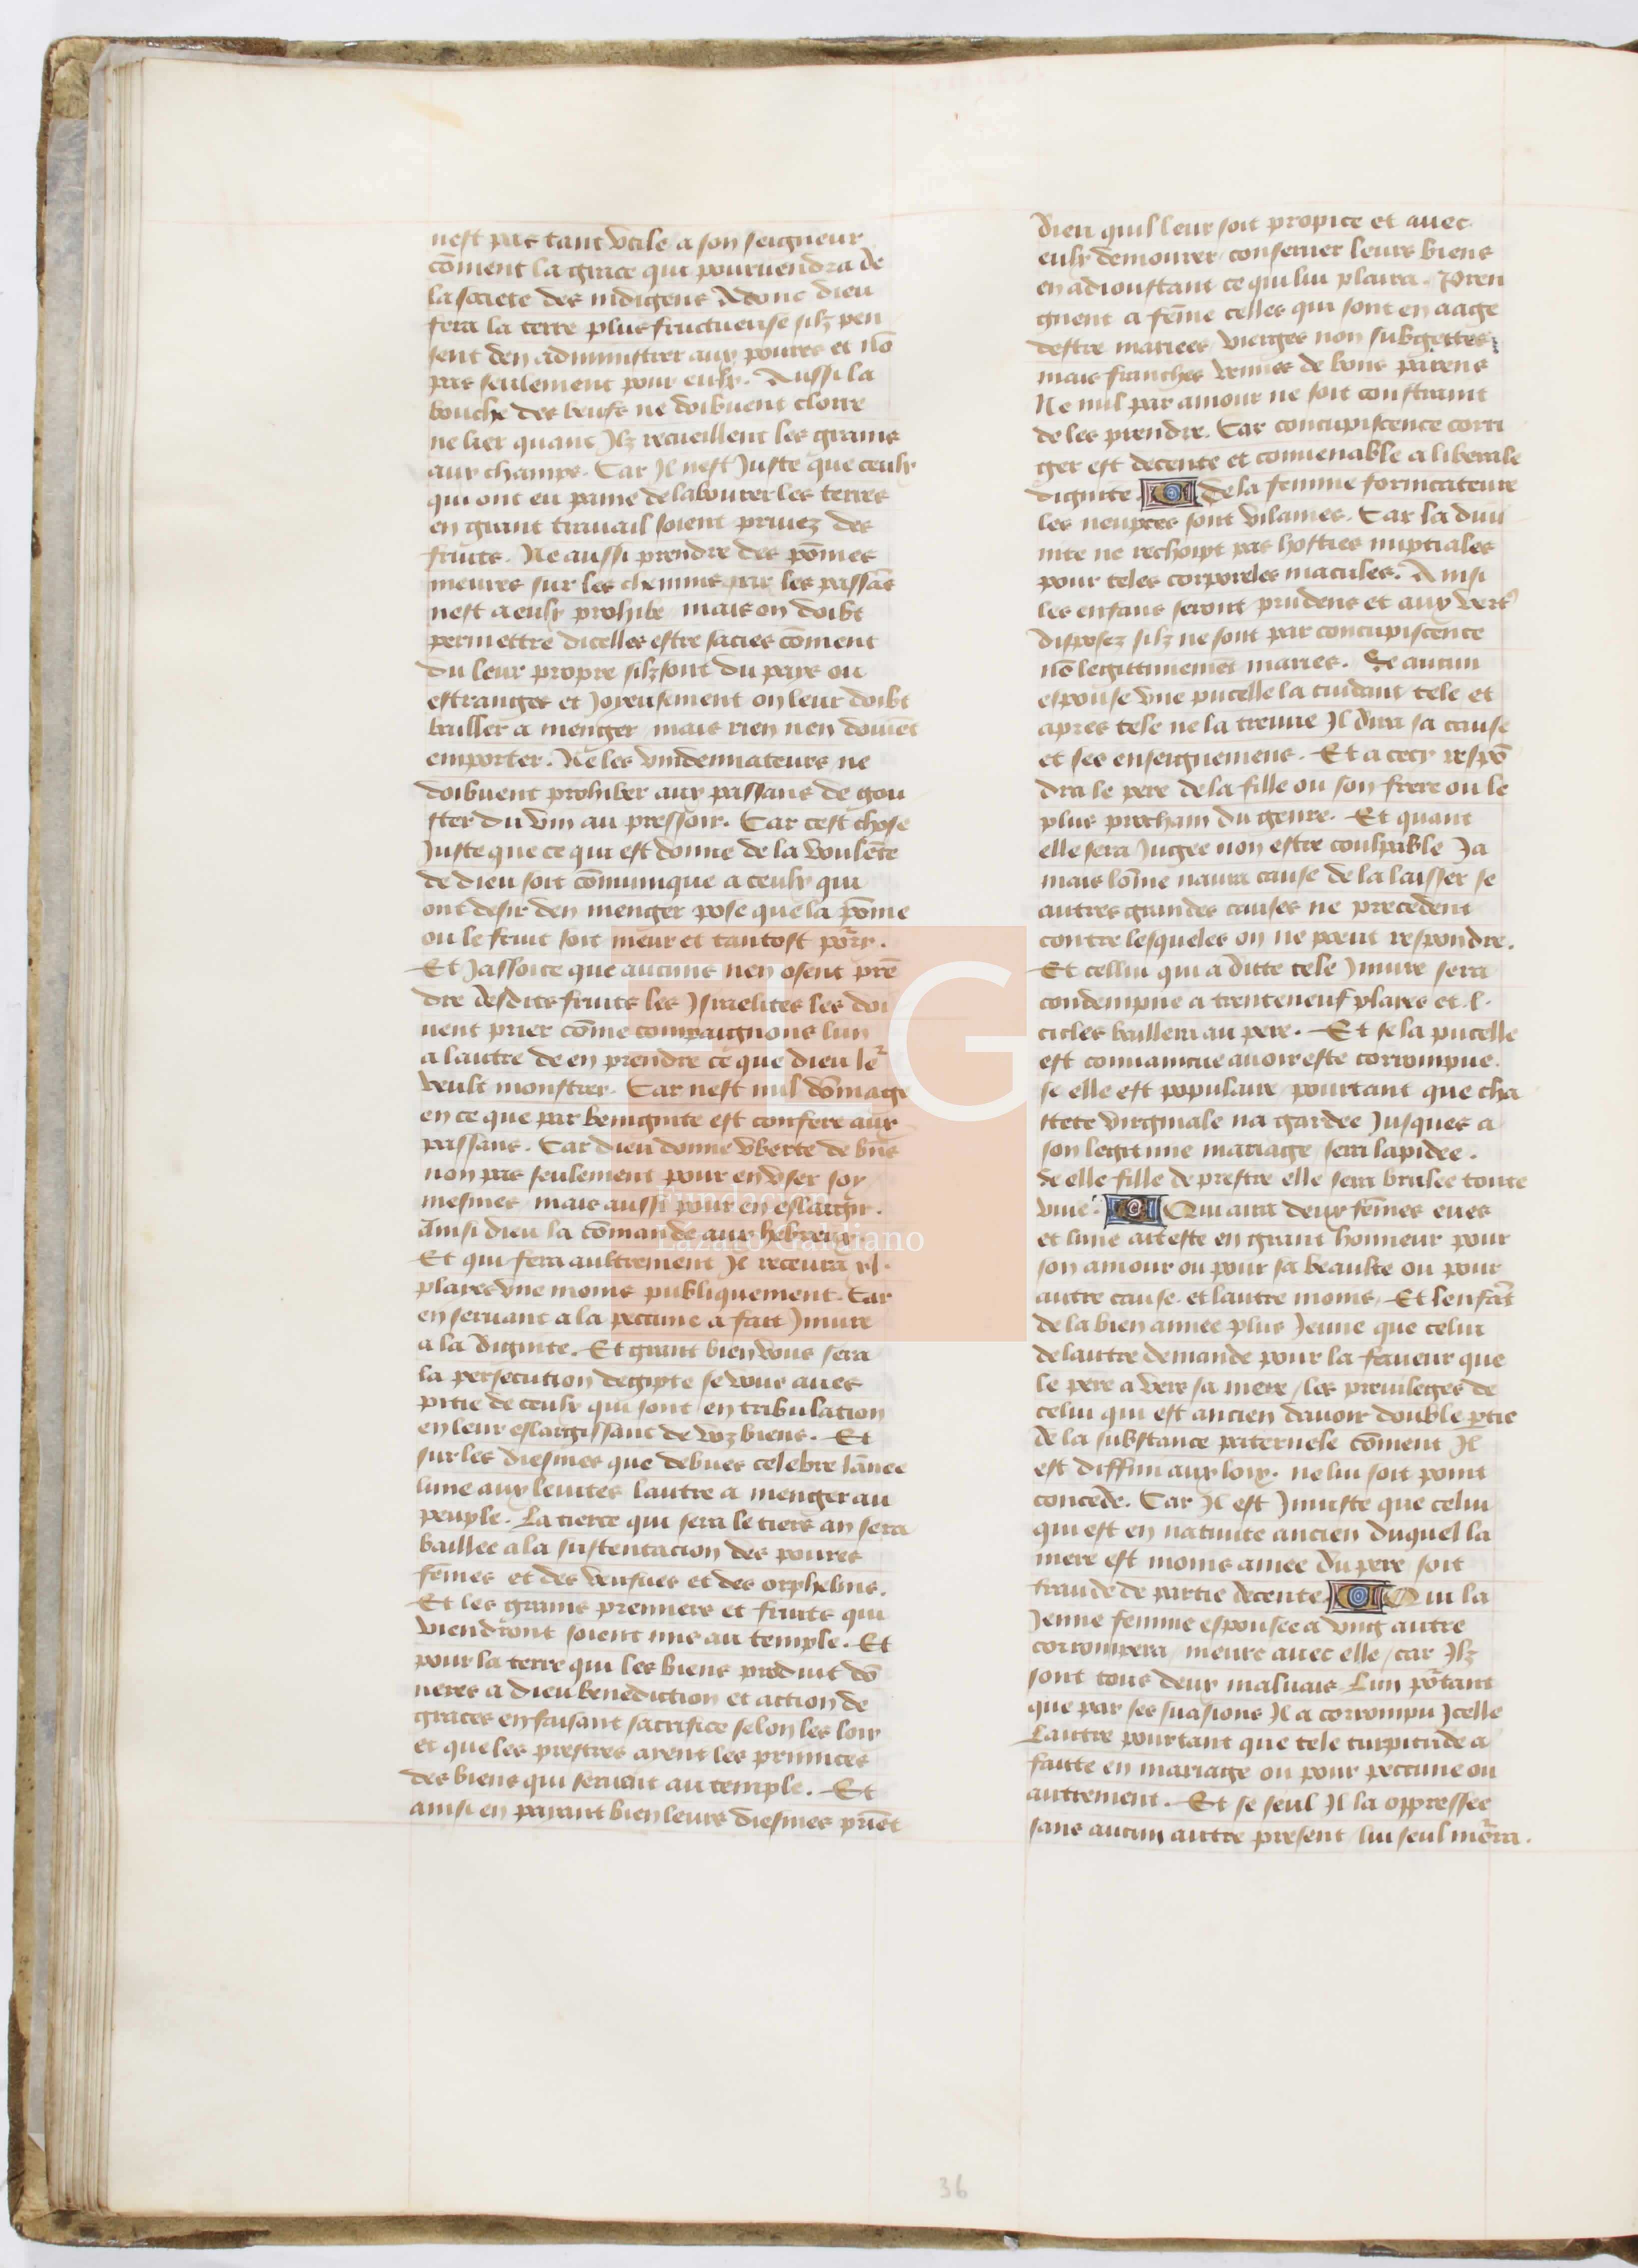 nest pas tant vtile a son seigneur
cōment la grace qui pouruendra de
la societe des indigens Adonc dieu
fera la terre plus fructueuse silz pen
sent den administrer aux poures et nō
pas seulement pour eulx. Aussi la
bouche des beufs ne doibuent clorre
ne lier quant Ilz recueillent les grains
aux champs. Car Il nest Juste que ceulx
qui ont eu paine de labourer les terres
en grant trauail soient priuez des
fruits. Ne aussi prendre des pōmes
meures sur les chemins par les passās
nest a eulx prohibe mais on doibt
permettre dicelles estre sacies cōment
du leur propre silz sont du pays ou
estranges et Joyeusement on leur doibt
bailler a menger mais rien nen doiuēt
emporter. Ne les vindemiateurs ne
doibuent prohiber aux passans de gou
ster du vin au pressoir. Car cest chose
Juste que ce qui est donne de la voulēte
de dieu soit cōmunique a ceulx qui
ont desir den menger pose que la pōme
ou le fruit soit meur et tantost porry.
Et Jassoice que aucuns nen osent prē
dre desdits fruits les Israelites les doi
uent prier cōme compaignons lun
a lautre de en prendre ce que dieu le^r
veult monstrer. Car nest nul dōmage
en ce que par benignite est confere aux
passans. Car dieu donne vberte de biēs
non pas seulement pour en vser soy
mesmes mais aussi pour en eslargir.
Ainsi dieu la cōmande aux hebreux.
Et qui fera aultrement Il receura xl.
plaies vne moins publiquement. Car
en seruant a la peccune a fait Iniure
a la dignite. Et grant bien vous sera
la persecution degipte se vous aues
pitie de ceulx qui sont en tribulation
en leur eslargissant de voz biens. Et
sur les diesmes que debues celebre lānee
lune aux leuites lautre a menger au
peuple. La tierce qui sera le tiers an sera
baillee a la sustentacion des poures
fēmes et des veufues et des orphelins.
Et les grains premiers et fruits qui
viendront soient mis au temple. Et
pour la terre qui les biens produit dō
neres a dieu benediction et action de
graces en faisant sacrifice selon les loix
et que les prestres ayent les primices
des biens qui seruent au temple. Et
ainsi en payant bien leurs diesmes priēt
dieu quil leur soit propice et auec
eulx demourer conseruer leurs biens
en adioustant ce qui lui plaira. Pren
gnent a fēme celles qui sont en aage
destre mariees vierges non subgettes
mais franches venues de bons parens
Ne nul par amour ne soit constraint
de les prendre. Car concupiscence corri
ger est decente et conuenable a liberale
dignite. De la femme fornicateure
les neupces sont vilaines. Car la diui
nite ne rechoipt pas hosties nuptiales
pour teles corporeles macules. Ainsi
les enfans seront prudens et aux vert^s
disposez silz ne sont par concupiscence
nō legittimemēt maries. Se aucun
espouse vne pucelle la cuidant tele et
apres tele ne la treuue Il dira sa cause
et ses enseignemens. Et a cecy respō
dra le pere de la fille ou son frere ou le
plus prochain du genre. Et quant
elle sera Jugee non estre coulpable Ja
mais lōme naura cause de la laisser se
autres grandes causes ne precedent
contre lesqueles on ne peeut respondre.
Et cellui qui a ditte tele Iniure sera
condempne a trenteneuf plaies et .l.
cicles baillera au pere. Et se la pucelle
est conuaincue auoir este corrompue.
se elle est populaire pourtant que cha
stete virginale na gardee Jusques a
son legitime mariage sera lapidee.
Se elle fille de prestre elle sera brulee toute
viue. Qui aura deux fēmes eues
et lune ait este en grant honneur pour
son amour ou pour sa beaulte ou pour
autre cause. et lautre moins. Et lenfāt
de la bien amee plus Jeune que celui
de lautre demande pour la faueur que
le pere a vers sa mere les preuileges de
celui qui est ancien dauoir double ptie
de la substance paternele cōment Il
est diffini aux loix. ne lui soit point
concede. Car Il est Iniuste que celui
qui est en natiuite ancien duquel la
mere est moins amee du pere soit
fraude de partie decente. Qui la
Jenne femme espousee a vng autre
corrompera meure auec elle car Ilz
sont tous deux maluais Lun pōrtant
que par ses suasions Il a corrompu Icelle
Lautre pourtant que tele turpitude a
faitte en mariage ou pour peccune ou
autrement. Et se seul Il la oppressee
sans aucun autre present lui seul mōrra.
36
FLG
Fundación
Lázaro Galdiano